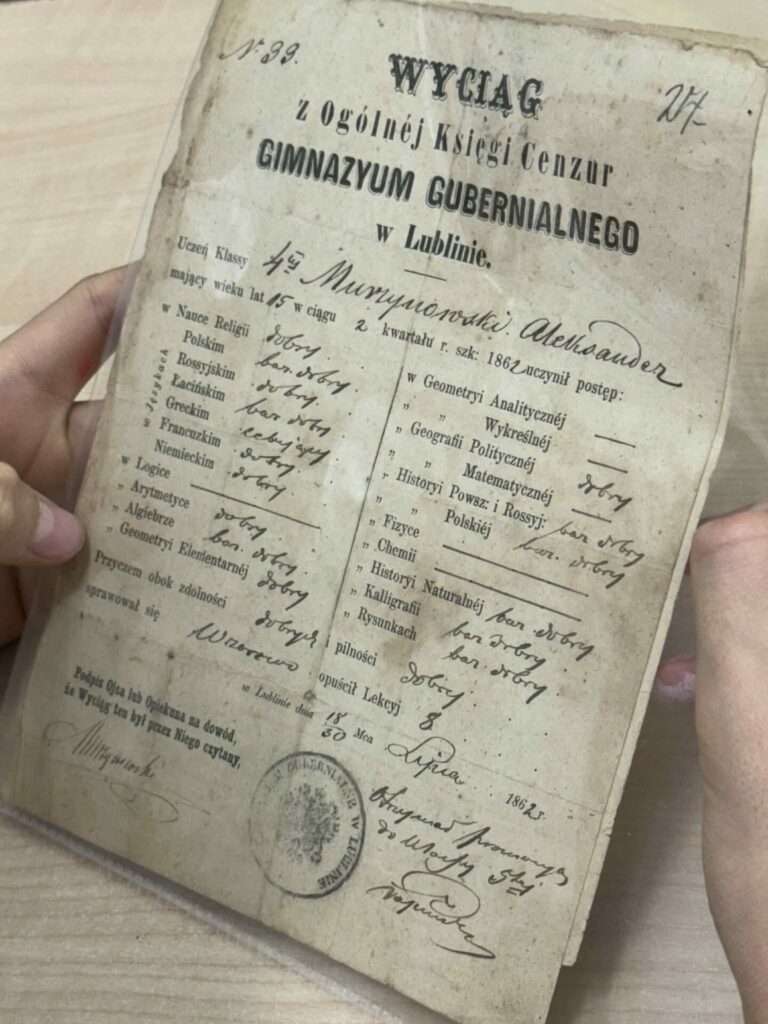 N. 99.
24
WYCIĄG
z Ogólnéj Księgi Cenzur
GIMNAZYUM GUBERNIALNEGO
w Lublinie.
Uczeń Klassy 4tej Murzynowski Aleksander
mający wieku lat 15 w ciągu 2 kwartału r. szk: 1862 uczynił postęp:
w Nauce Religii dobry
Językach
Polskim bar. dobry
Rossyjskim dobry
Łacińskim bar dobry
Greckim celujący
Francuzkim dobry
Niemieckim dobry
w Logice
„ Arytmetyce dobry
„ Algiebrze bar. dobry
„ Geometryi Elementarnéj dobry
w Geometryi Analitycznéj
„ „ Wykreślnéj
„ Geografii Politycznéj dobry
„ „ Matematycznéj
„ Historyi Powsz: i Rossyj: bar dobry
„ „ Polskiéj bar. dobry
„ Fizyce
„ Chemii
„ Historyi Naturalnéj bar dobry
„ Kalligrafii bar dobry
„ Rysunkach bar. dobry
Przyczem obok zdolności dobrych i pilności dobrej
sprawował się Wzorowo opuścił Lekcyj 8
w Lublinie dnia 18/30 Mca Lipca 1862
Podpis Ojca lub Opiekuna na dowód,
że Wyciąg ten był przez Niego czytany,
Murzynowski
GUBERNIALNE W LUBLINIE
Otrzymał promocyą
do klassy 5tej